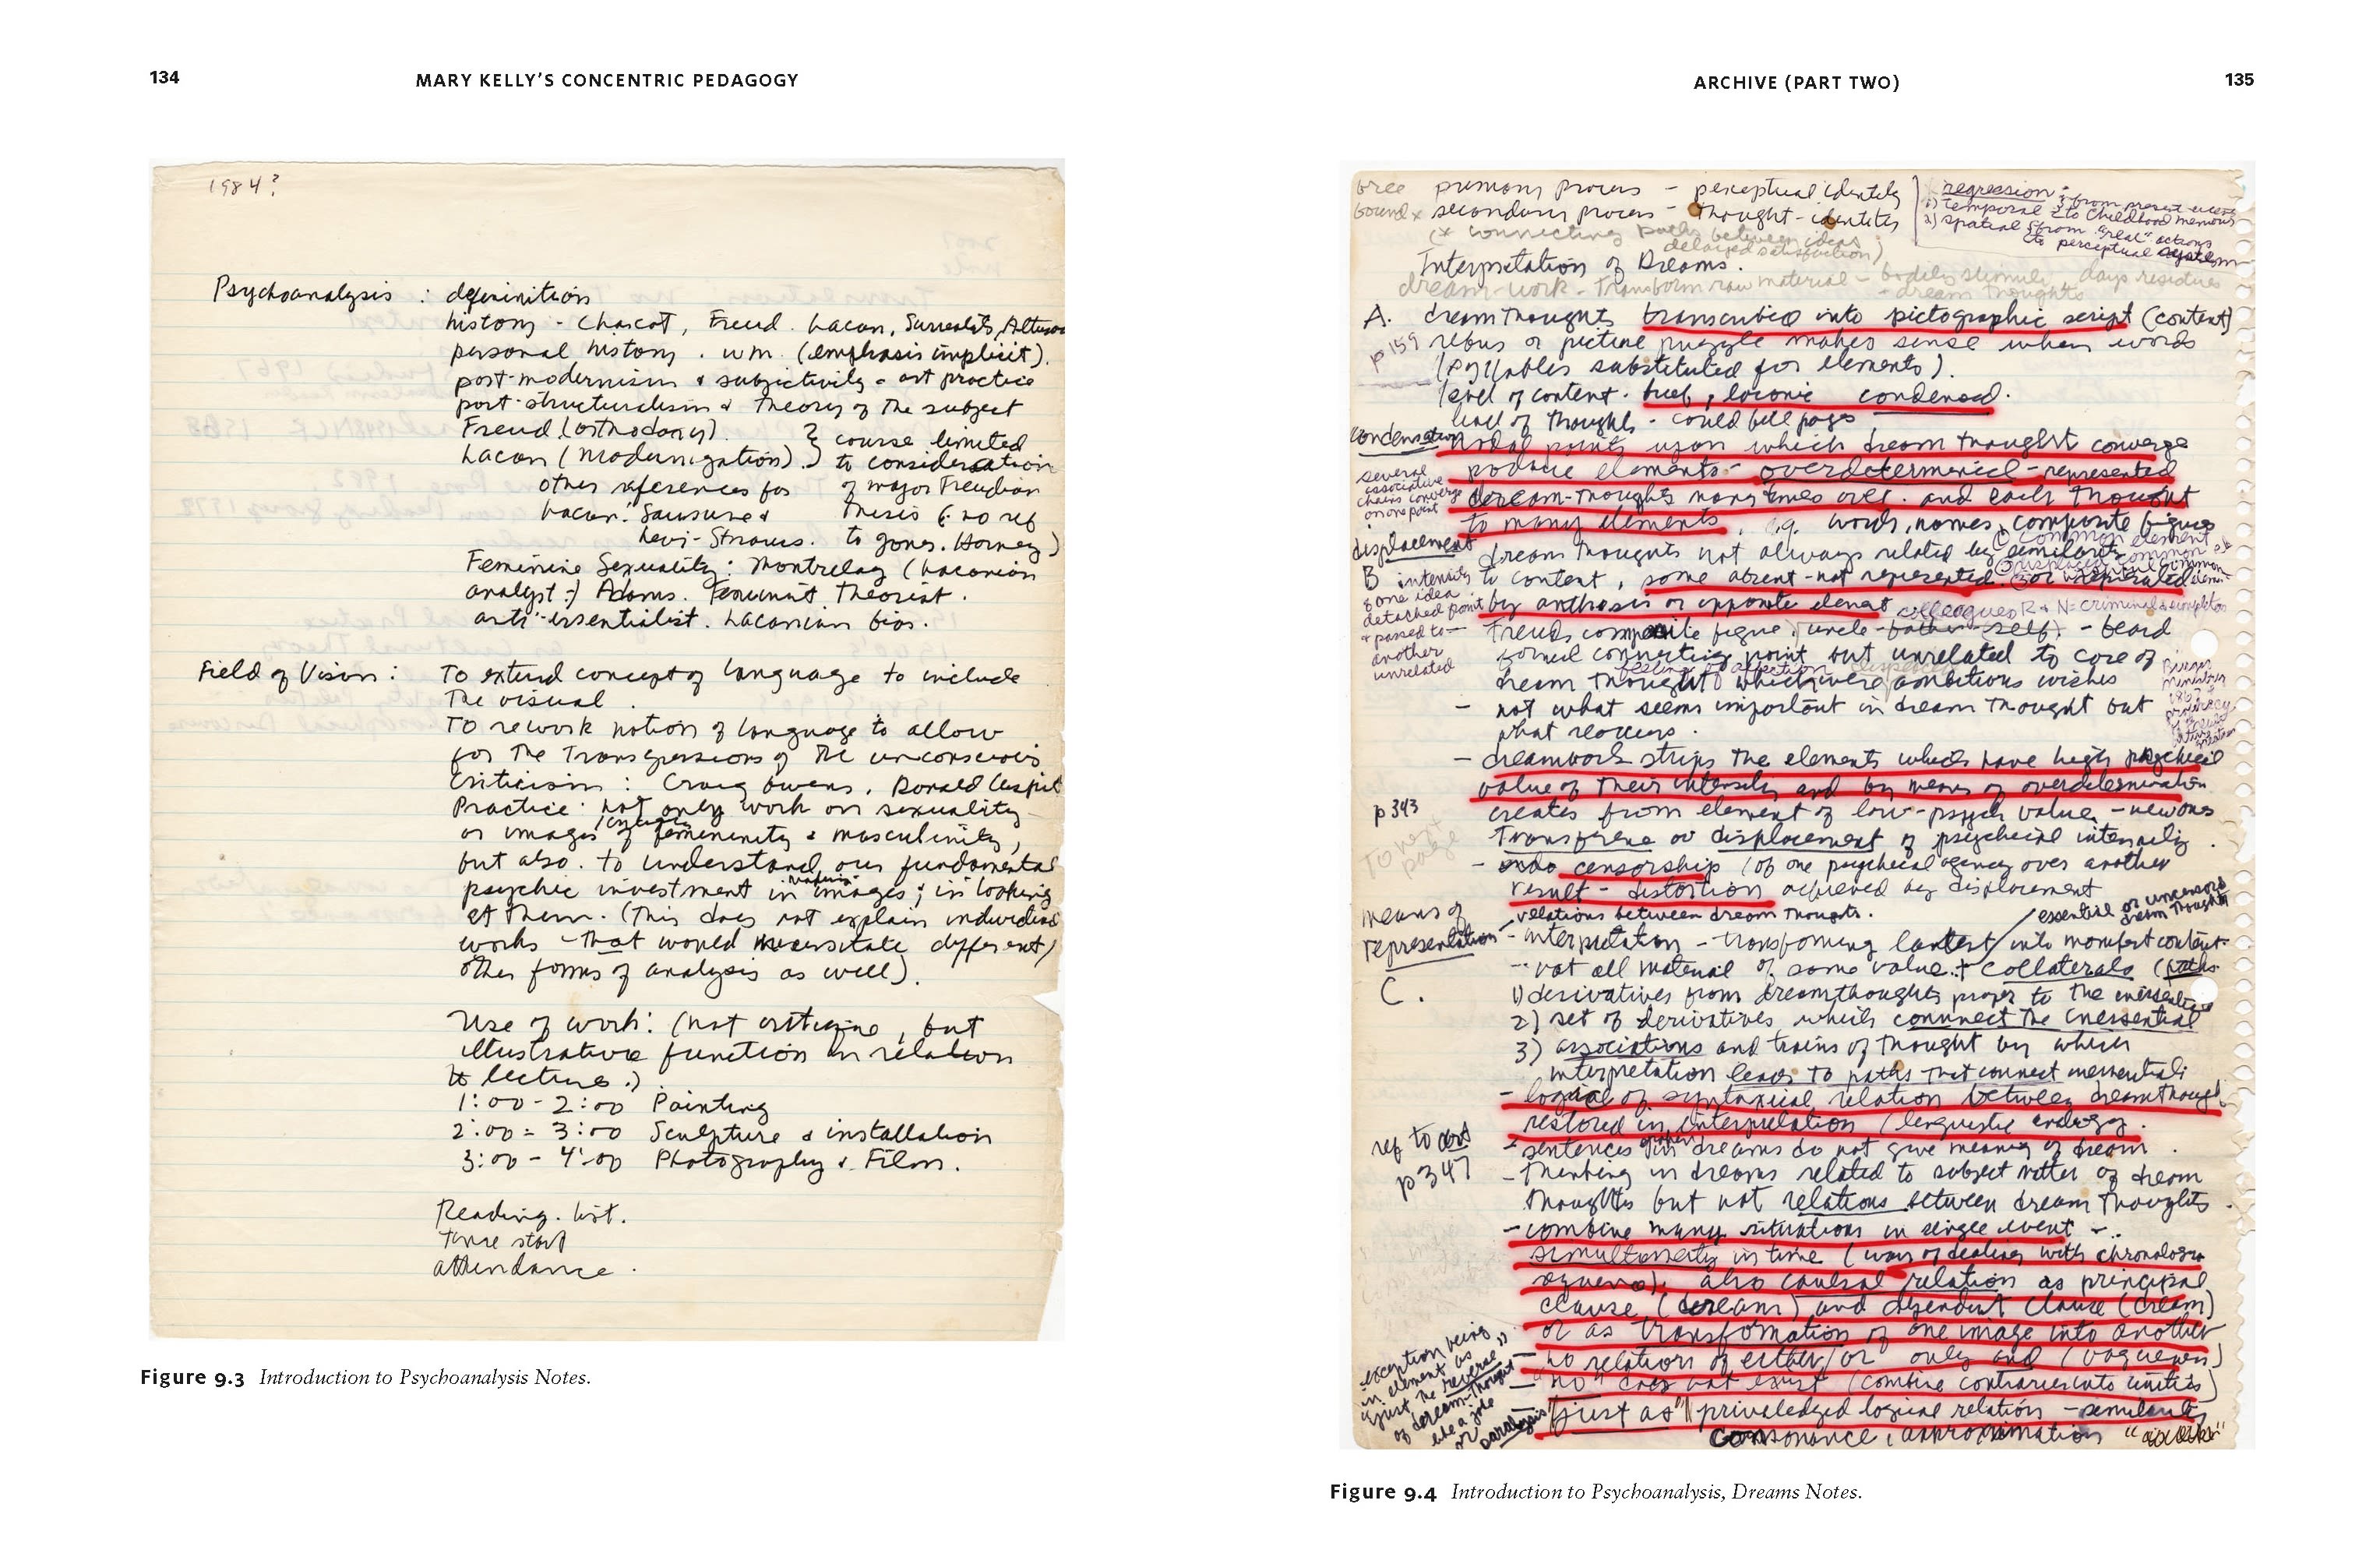 134
MARY KELLY'S CONCENTRIC PEDAGOGY
1984?
Psychoanalysis : definition
history - Charcot, Freud. Lacan, Surrealists,
personal history. wm. (emphasis implicit).
post-modernism & subjectivity - art practice
post-structuralism & theory of the subject
Freud (orthodoxy). } course limited
Lacan (modernization). } to consideration
other references for of major Freudian
Lacan: Sausure & thesis (no ref
Levi-Strauss. to Jones. Horney)
Feminine Sexuality: Montrelay (Lacanian
analyst:) Adams. Feminist Theorist.
anti-essentialist. Lacanian bias.
Field of Vision : To extend concept of language to include
the visual.
To rework notion of language to allow
for the transgressions of the unconscious
Criticism : Craig Owens, Donald Cuspit
Practice: not only work on sexuality
or images of femininity & masculinity,
but also. to understand our fundamental
psychic investment in images; in looking
at them. (This does not explain individual
works - that would necessitate different)
other forms of analysis as well).
Use of work: (not critique, but
illustrative function in relation
to lecture.)
1:00 - 2:00 Painting
2:00 - 3:00 Sculpture & installation
3:00 - 4:00 Photography & Film.
Reading list.
Time start
attendance.
Figure 9.3 Introduction to Psychoanalysis Notes.
ARCHIVE (PART TWO)
135
free primary process - perceptual identity
bound x secondary process - thought-identity
(x connecting paths between ideas
delayed satisfaction)
regression:
1) temporal to childhood memories
2) spatial from "real" actions
to perceptual system
Interpretation of Dreams.
dream-work - transform raw material - bodily stimuli, days residues
- dream thoughts
A. dream thoughts transcribed into pictographic script (content)
p159 rebus or picture puzzle makes sense when words
(syllables substituted for elements).
level of content - brief, laconic condensed.
level of thoughts - could fill pages
condensation nodal points upon which dream thought converge
several
associative
chains converge
on one point
produce elements - overdetermined - represented
dream-thoughts many times over. and each thought
to many elements, e.g. words, names, composite figures
displacement dream thoughts not always related by similarity
B intensity
of one idea
detached point
& passed to
another
unrelated
to content, some absent - not represented or represented
by anthesis or opposite element
Freuds composite figure, uncle - father (self) - beard
formed connecting point but unrelated to core of
feeling of affection displaced
dream thought which were ambitious wishes
- not what seems important in dream thought but
what reoccurs.
- dreamwork strips the elements which have high psychical
value of their intensity and by means of overdetermination
p343 creates from element of low-psych value - new ones
To next
page
transference or displacement of psychical intensity.
- censorship (of one psychical agency over another
result - distortion achieved by displacement
means of
representation
relations between dream thoughts.
essential or uncensored
dream thoughts
- interpretation - transforming latent into manifest content.
- not all material of same value. + collaterals (paths
C. 1) derivatives from dreamthoughts proper to the inessential
2) set of derivatives which connect the inessential
3) associations and trains of thought by which
interpretation leads to paths that connect inessential
- logical of syntaxical relation between dreamthought
restored in interpretation (linguistic analogy.
ref to art
p347
- sentences in dreams do not give meaning of dream.
- thinking in dreams related to subject matter of dream
thoughts but not relations between dream thoughts.
- combine many situations in single event -
simultaneity in time (way of dealing with chronology
sequence); also causal relation as principal
clause (dream) and dependent clause (dream)
or as transformation of one image into another
- no relation of either/or only and (vagueness)
- "no" does not exist (combine contraries into unities)
exception being
in element as
"just the reverse"
of dream-thought
like a joke
or paralysis
- "just as" priviledged logical relation - similarity
consonance, approximation
Figure 9.4 Introduction to Psychoanalysis, Dreams Notes.